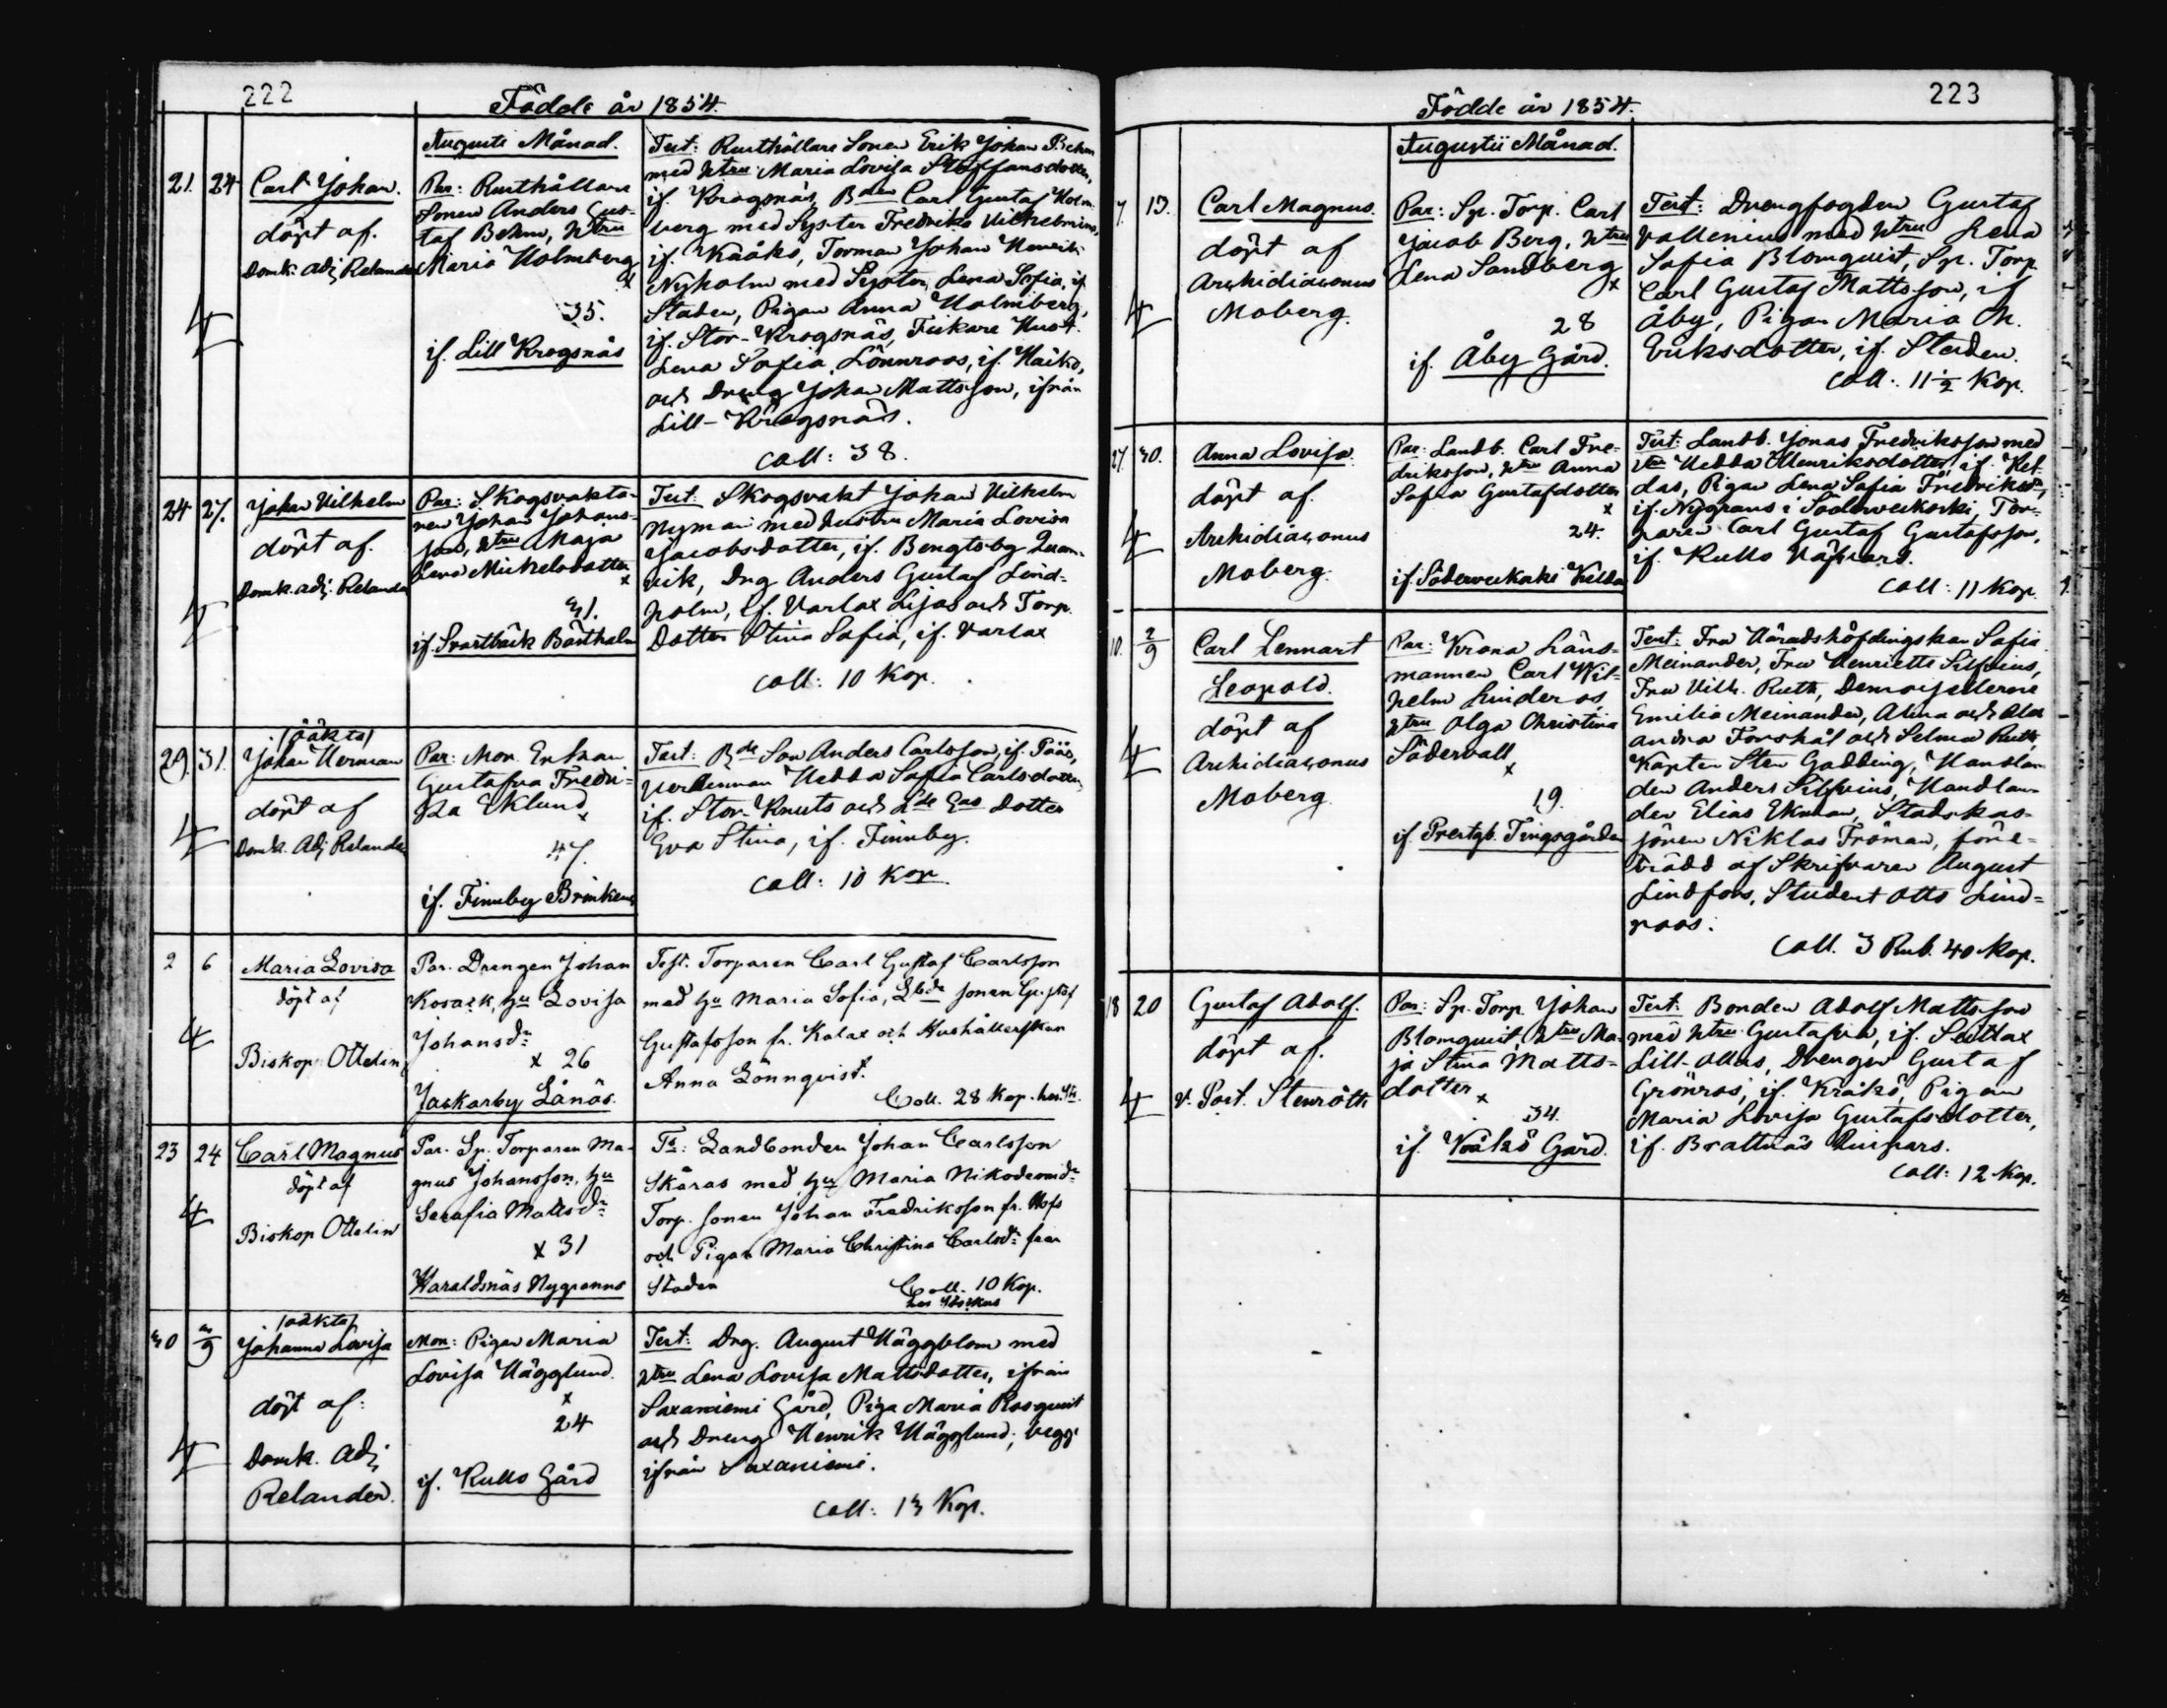 222
Födde år 1854.
Augusti Månad.
21. 24
Carl Johan.
döpt af.
Domk. adj. Relander
Par: Rusthållare
Sonen Anders Gus-
taf Behm, Hstru
Maria Holmberg
x
35.
if. Lill Krogsnäs
Test: Rusthållare Sonen Erik Johan Behm
med Hstru Maria Lovisa Staffansdotter,
if. Krogsnäs, Bden Carl Gustaf Holm-
berg med Syster Fredrika Vilhelmina,
if. Kråkö, Torman Johan Henrik
Nyholm med Syster Lena Sofia, if.
Staden, Pigan Anna Holmberg,
if. Stor-Krogsnäs, Fiskare Hust.
Lena Sofia Lönnroos, if. Haiko,
och Dreng Johan Mattsson, ifrån
Lill-Krogsnäs.
Coll: 38.
24 27.
Johan Vilhelm
döpt af.
Domk. adj. Relander
Par: Skogsvakta-
ren Johan Johans-
son, Hstru Maja
Lena Mickelsdotter
x
31.
if. Svartbäck Bastholm
Test: Skogsvakt Johan Vilhelm
Nyman med hustru Maria Lovisa
Jacobsdotter, if. Bengtsby
vik, Dng Anders Gustaf Lind-
holm, if. Varlax Lijas och Torp.
Dotter Stina Sofia, if. Varlax
Coll: 10 Kop.
29. 31.
/oäkta/
Johan Herman
döpt af
Domk. Adj Relander
Par: Mor. Enkan
Gustafva Fredri-
ka Eklund
x
47.
if. Finnby Brinkens
Test: Bde Son Anders Carlsson, if.
Hedda Sofia Carlsdotter,
if. Stor-Knuts och Lde Eas dotter
Eva Stina, if. Finnby.
Coll: 10 Kop.
2 6
Maria Lovisa
döpt af
Biskop Ottelin
Par. Drengen Johan
Kosack, hu Lovisa
Johansdr
x 26
Jackarby Lånäs.
Test. Torparen Carl Gustaf Carlsson
med hu Maria Sofia, Lbde sonen Gustaf
Gustafsson fr. Kalax och Hushållerskan
Anna Lönnqvist.
Coll. 28 Kop.
23 24
Carl Magnus
döpt af
Biskop Ottelin
Par. Sp. Torparen Ma-
gnus Johansson, hu
Serafia Mattsdr
x 31
Haraldsnäs Nygranns
Tt: Landbonden Johan Carlsson
Skåras med hu Maria Nikodemidr
Torp. sonen Johan Fredriksson fr. Hofs
och Pigan Maria Christina Carlsdr från
Staden
Coll. 10 Kop.
30 3/9
/oäkta/
Johanna Lovisa
döpt af:
Domk. Adj
Relander.
Mor: Pigan Maria
Lovisa Hägglund.
x
24
if. Kullo Gård
Test: Dng. August Häggblom med
Hstru Lena Lovisa Mattsdotter, ifrån
Saxaniemi Gård, Piga Maria Rosqvist
och Dreng Henrik Hägglund, begge
ifrån Saxaniemi.
Coll: 13 Kop.
223
Födde år 1854.
Augustii Månad.
7. 13.
Carl Magnus.
döpt af
Archidiaconus
Moberg.
Par: Sp. Torp. Carl
Jacob Berg, Hstru
Lena Sandberg
x
28
if. Åby Gård.
Test: Drengfogden Gustaf
Vallenius med Hstru Lena
Sofia Blomquist, Sp. Torp.
Carl Gustaf Mattsson, if
Åby, Pigan Maria M.
Eriksdotter, if. Staden.
Coll: 11 1/2 Kop.
27. 30.
Anna Lovisa.
döpt af.
Archidiaconus
Moberg.
Par: Landb. Carl Fre-
driksson, Hstru Anna
Sofia Gustafsdotter
x
24.
if. Söderveckoski Keldas
Test: Landb. Jonas Fredriksson med
Hstru Hedda Henriksdotter, if. Kel-
das, Pigan Lena Sofia Fredriksdr,
if. Nygrans i Söderveckoski, Tor-
paren Carl Gustaf Gustafsson,
if. Kullo
Coll: 11 Kop.
10. 2/9
Carl Lennart
Leopold.
döpt af
Archidiaconus
Moberg.
Par: Krono Läns-
mannen Carl Wil-
helm Linderos,
Hstru Olga Christina
Södervall
x
19.
if. Prestgb. Tingsgården
Test: Fru Häradshöfdingskan Sofia
Meinander, Fru Henriette Silfvius,
Fru Vilh. Ruth, Demoisellerne
Emilia Meinander, Alma och Alex
andra Forskål och Selma Ruth,
Kapten Sten Gadding, Handlan-
den Anders Silfvius, Handlan-
den Elias Ekman, Stadskas-
sören Niklas Fröman, före-
trädd af Skrifvaren August
Lindfors, Student Otto Lind-
roos.
Coll. 3 Rub. 40 Kop.
18 20
Gustaf Adolf.
döpt af.
v. Past. Stenroth
Par: Sp. Torp. Johan
Blomquist, Hstru Ma-
ja Stina Matts-
dotter
x
34.
if. Kråkö Gård.
Test: Bonden Adolf Mattsson
med Hstru Gustafva, if. Seitlax
Lill-Ollas, Drengen Gustaf
Grönros, if. Kråkö, Pigan
Maria Lovisa Gustafsdotter,
if. Brattnäs
Coll: 12 Kop.